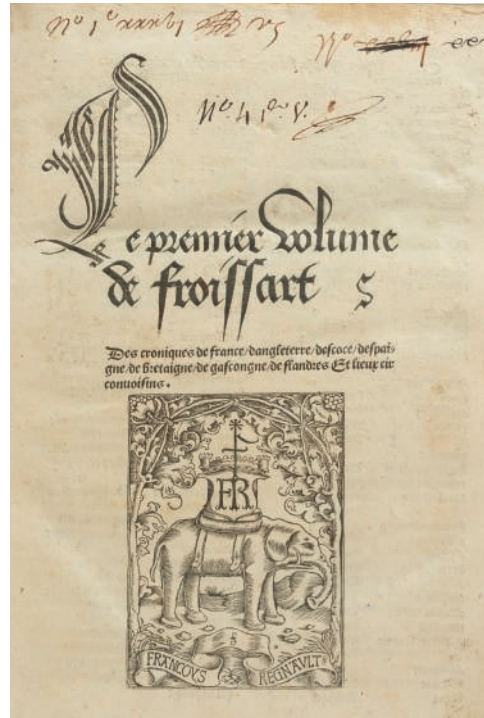 Le premier volume
de froissart s
Des croniques de france/dangleterre/descoce/despai-
gne/de bretaigne/de gascongne/de flandres Et lieux cir
conuoisins.
FR
FRANCOVS REGNAVLT